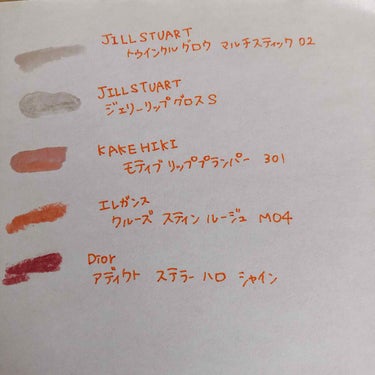 JILLSTUART
トゥインクルグロウ マルチスティック 02
JILLSTUART
ジェリーリップグロス S
KAKEHIKI
モティブ リッププランパー 301
エレガンス
クルーズ スティン ルージュ M04
Dior
アディクト ステラー ハロ シャイン